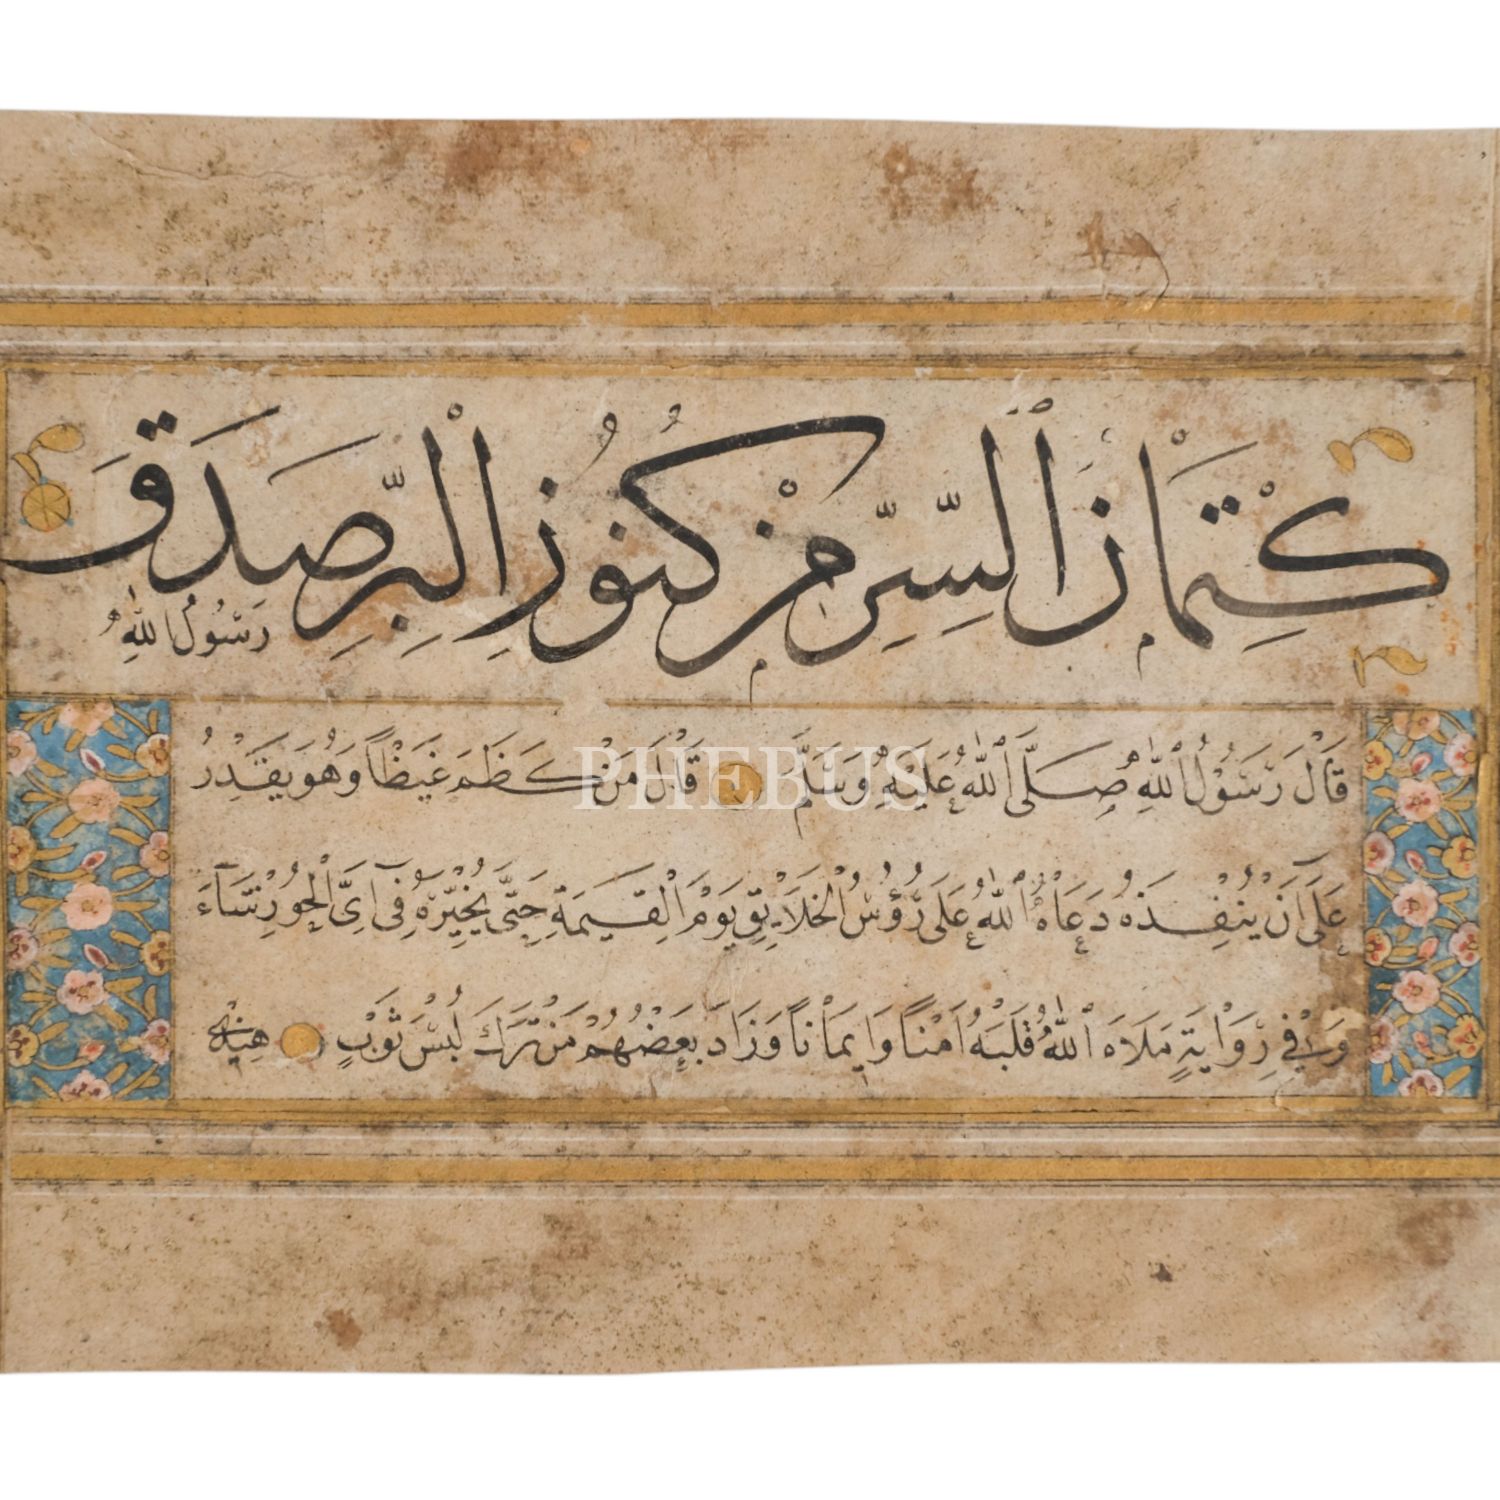 كِتْمَانُ ٱلسِّرِّ مِنْ كُنُوزِ ٱلْبِرِّ صَدَقَ
رَسُولُ اللّٰهِ
قَالَ رَسُولُ ٱللّٰهِ صَلَّى ٱللّٰهُ عَلَيْهِ وَسَلَّمَ قَالَ مَنْ كَظَمَ غَيْظًا وَهُوَ يَقْدِرُ
عَلَى اَنْ يُنْفِذَهُ دَعَاهُ ٱللّٰهُ عَلَى رُؤُسِ الْخَلَائِقِ يَوْمَ الْقِيٰمَةِ حَتَّى يُخَيِّرَهُ فِى اَىِّ الْحُورِ شَآءَ
وَفِي رِوَايَةٍ مَلَاَهُ ٱللّٰهُ قَلْبَهُ اَمْنًا وَاِيمَانًا وَزَادَ بَعْضُهُمْ مَنْ تَرَكَ لُبْسَ ثَوْبٍ
PHEBUS